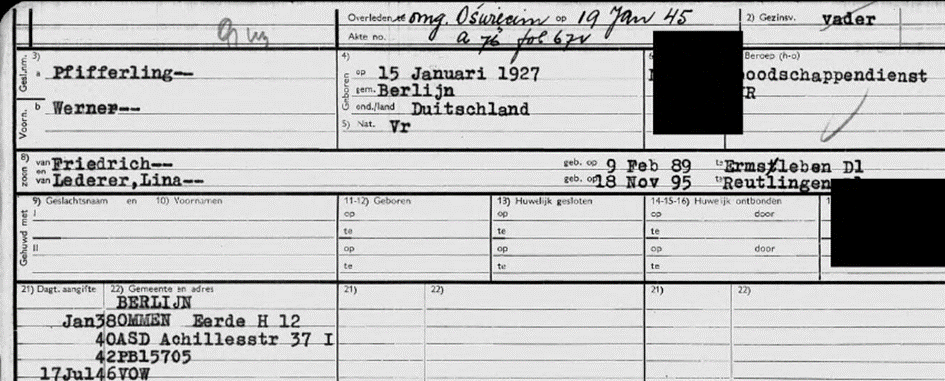 Overleden te omg. Ošwięcim op 19 Jan 45 2) Gezinsv. vader
Akte no. a 76 fol 67v
Gesl.nm. 3) a Pfifferling--
Voorn. b Werner--
4) Geboren op 15 Januari 1927
gem. Berlijn
and./land Duitschland
5) Nat. Vr
Beroep (h-o)
boodschappendienst
8) zoon van Friedrich-- geb. op 9 Feb 89 te Ermsleben Dl
en van Lederer,Lina-- geb. op 18 Nov 95 te Reutlingen
Gehuwd met 9) Geslachtsnaam en 10) Voornamen 11-12) Geboren 13) Huwelijk gesloten 14-15-16) Huwelijk ontbonden
I op op op door
te te te
II op op op door
te te te
21) Dagt. aangifte 22) Gemeente en adres 21) 22) 21) 22)
BERLIJN
Jan38OMMEN Eerde H 12
40ASD Achillesstr 37 I
42PB15705
17Jul46VOW